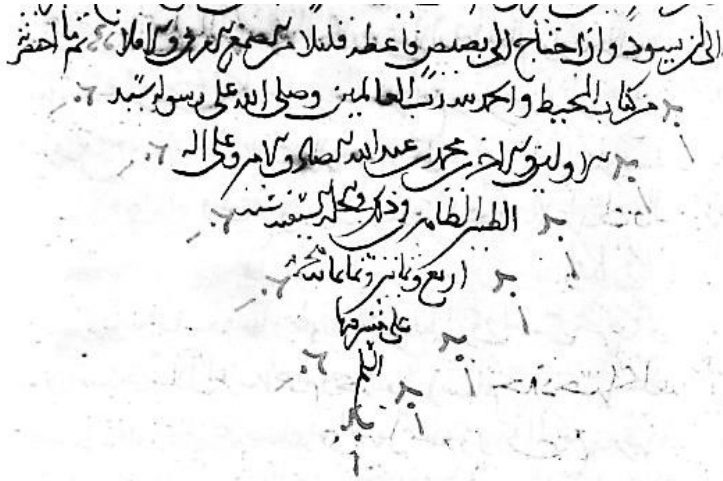 الى ان يسود وان احتاج الى بصيص فاعطه قليلا من الصمغ العربي والا فلا تم ما احضر
من كتاب المحيط والحمد لله رب العالمين وصلى الله على رسوله سيد
الاولين والاخرين محمد بن عبد الله الصادق الامين وعلى اله
الطيبين الطاهرين وذلك سنة
اربع وثمانين وثمانمائة
على مشرفها
السلم